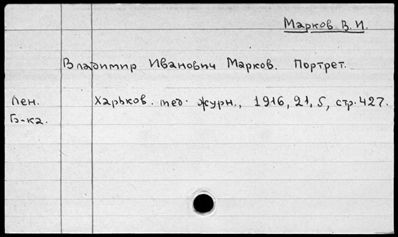 Марков В.И.
Владимир Иванович Марков. Портрет.
Лен. Харьков. мед. журн., 1916, 21, 5, стр. 427.
Б-ка.